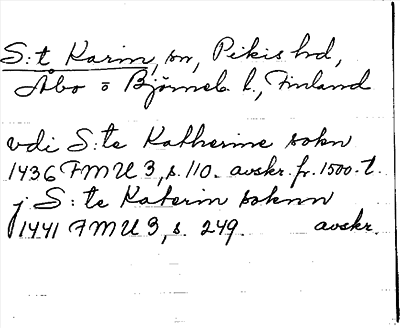 S:t Karin, sn, Pikis hd,
Åbo o Björneb. l., Finland
vdi S:te Katherine sokn
1436 FMU 3, s. 110. avskr. fr. 1500-t.
j S:te Katerin soknn
1441 FMU 3, s. 249. avskr.